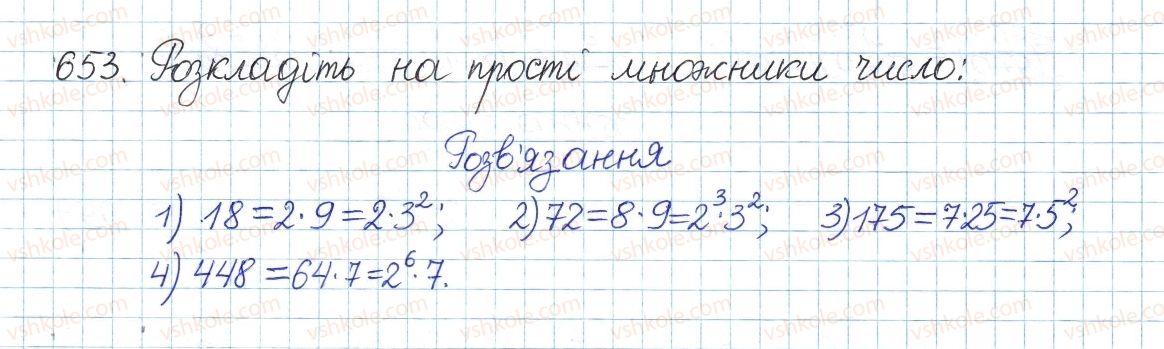 653. Розкладіть на прості множники число:
Розв'язання
1) 18 = 2·9 = 2·3²; 2) 72 = 8·9 = 2³·3²; 3) 175 = 7·25 = 7·5²;
4) 448 = 64·7 = 2⁶·7.